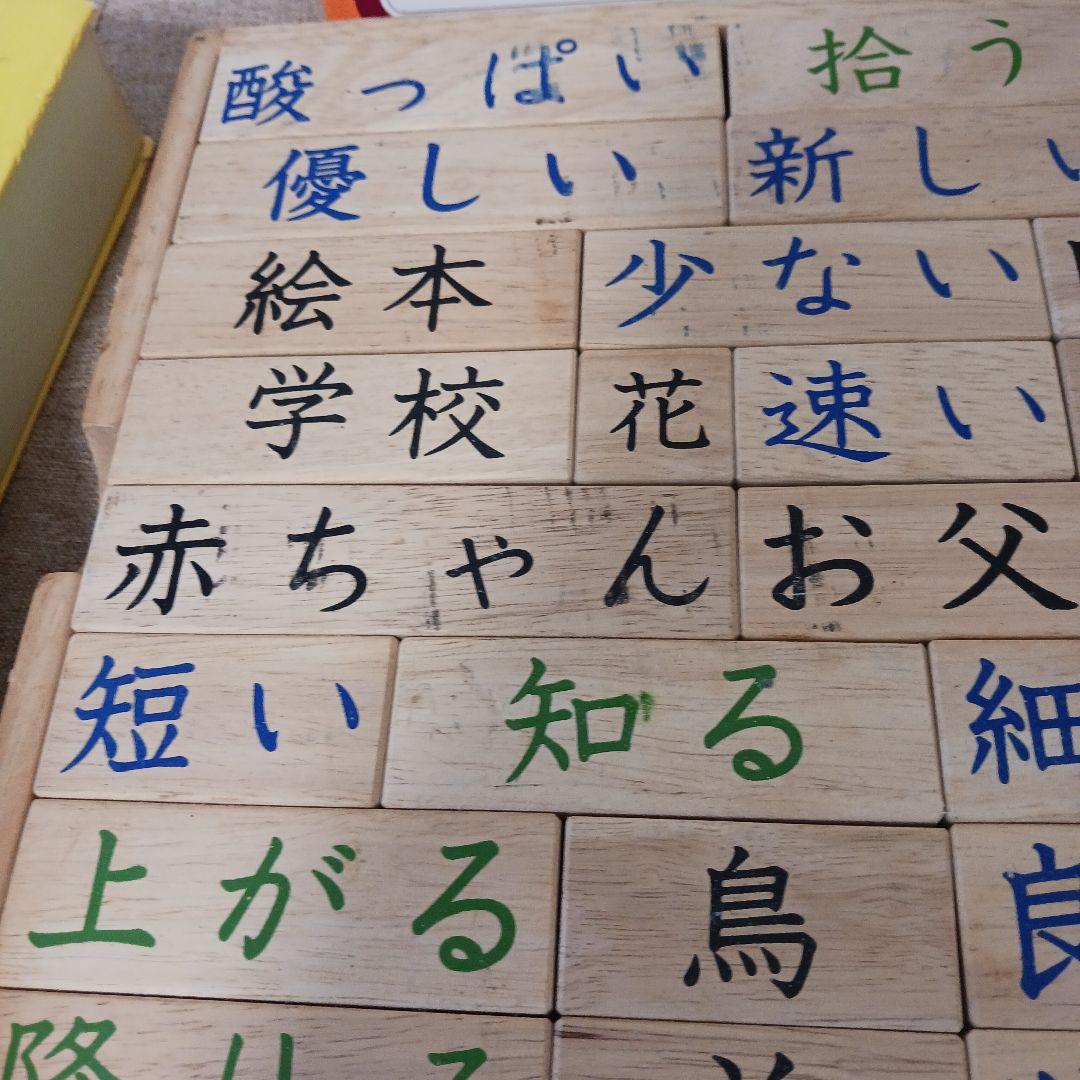 酸っぱい 拾う
優しい 新しい
絵本 少ない
学校 花 速い
赤ちゃん お父
短い 知る 細
上がる 鳥 良
降りる